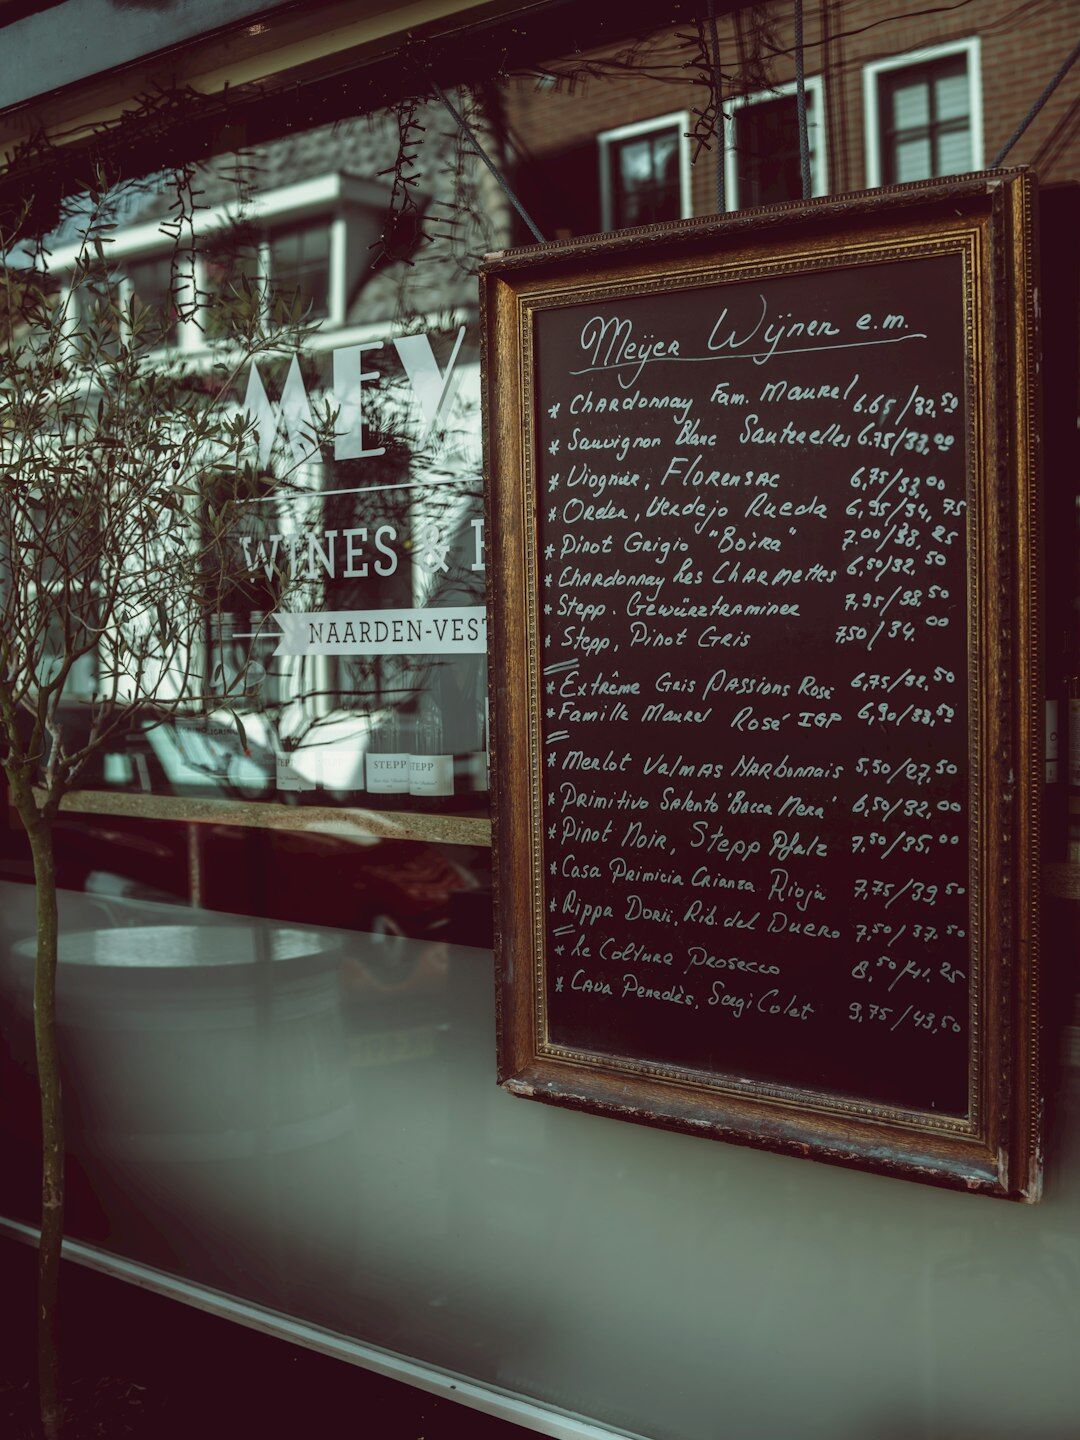 MEY
WINES &
NAARDEN-VEST
STEPP
STEPP
STEPP
Meijer Wijnen e.m.
* Chardonnay Fam. Maurel 6.65/32,50
* Sauvignon Blanc Sauterelles 6.75/33,00
* Viognier, Florensac 6,75/33,00
* Orden, Verdejo Rueda 6,95/34,75
* Pinot Grigio "Boira" 7.00/38,25
* Chardonnay Les Charmettes 6,50/32,50
* Stepp. Gewürztraminer 7,95/38,50
* Stepp, Pinot Gris 7,50/34,00
* Extrême Gris Passions Rosé 6,75/32,50
* Famille Maurel Rosé IGP 6,90/33,50
* Merlot Valmas Narbonnais 5,50/27,50
* Primitivo Salento 'Bacca Nera' 6,50/32,00
* Pinot Noir, Stepp Pfalz 7,50/35,00
* Casa Primicia Crianza Rioja 7,75/39,50
* Rippa Dorii, Rib. del Duero 7,50/37,50
* Le Coltura Prosecco 8,50/41,25
* Cava Penedès, Sergi Colet 9,75/43,50